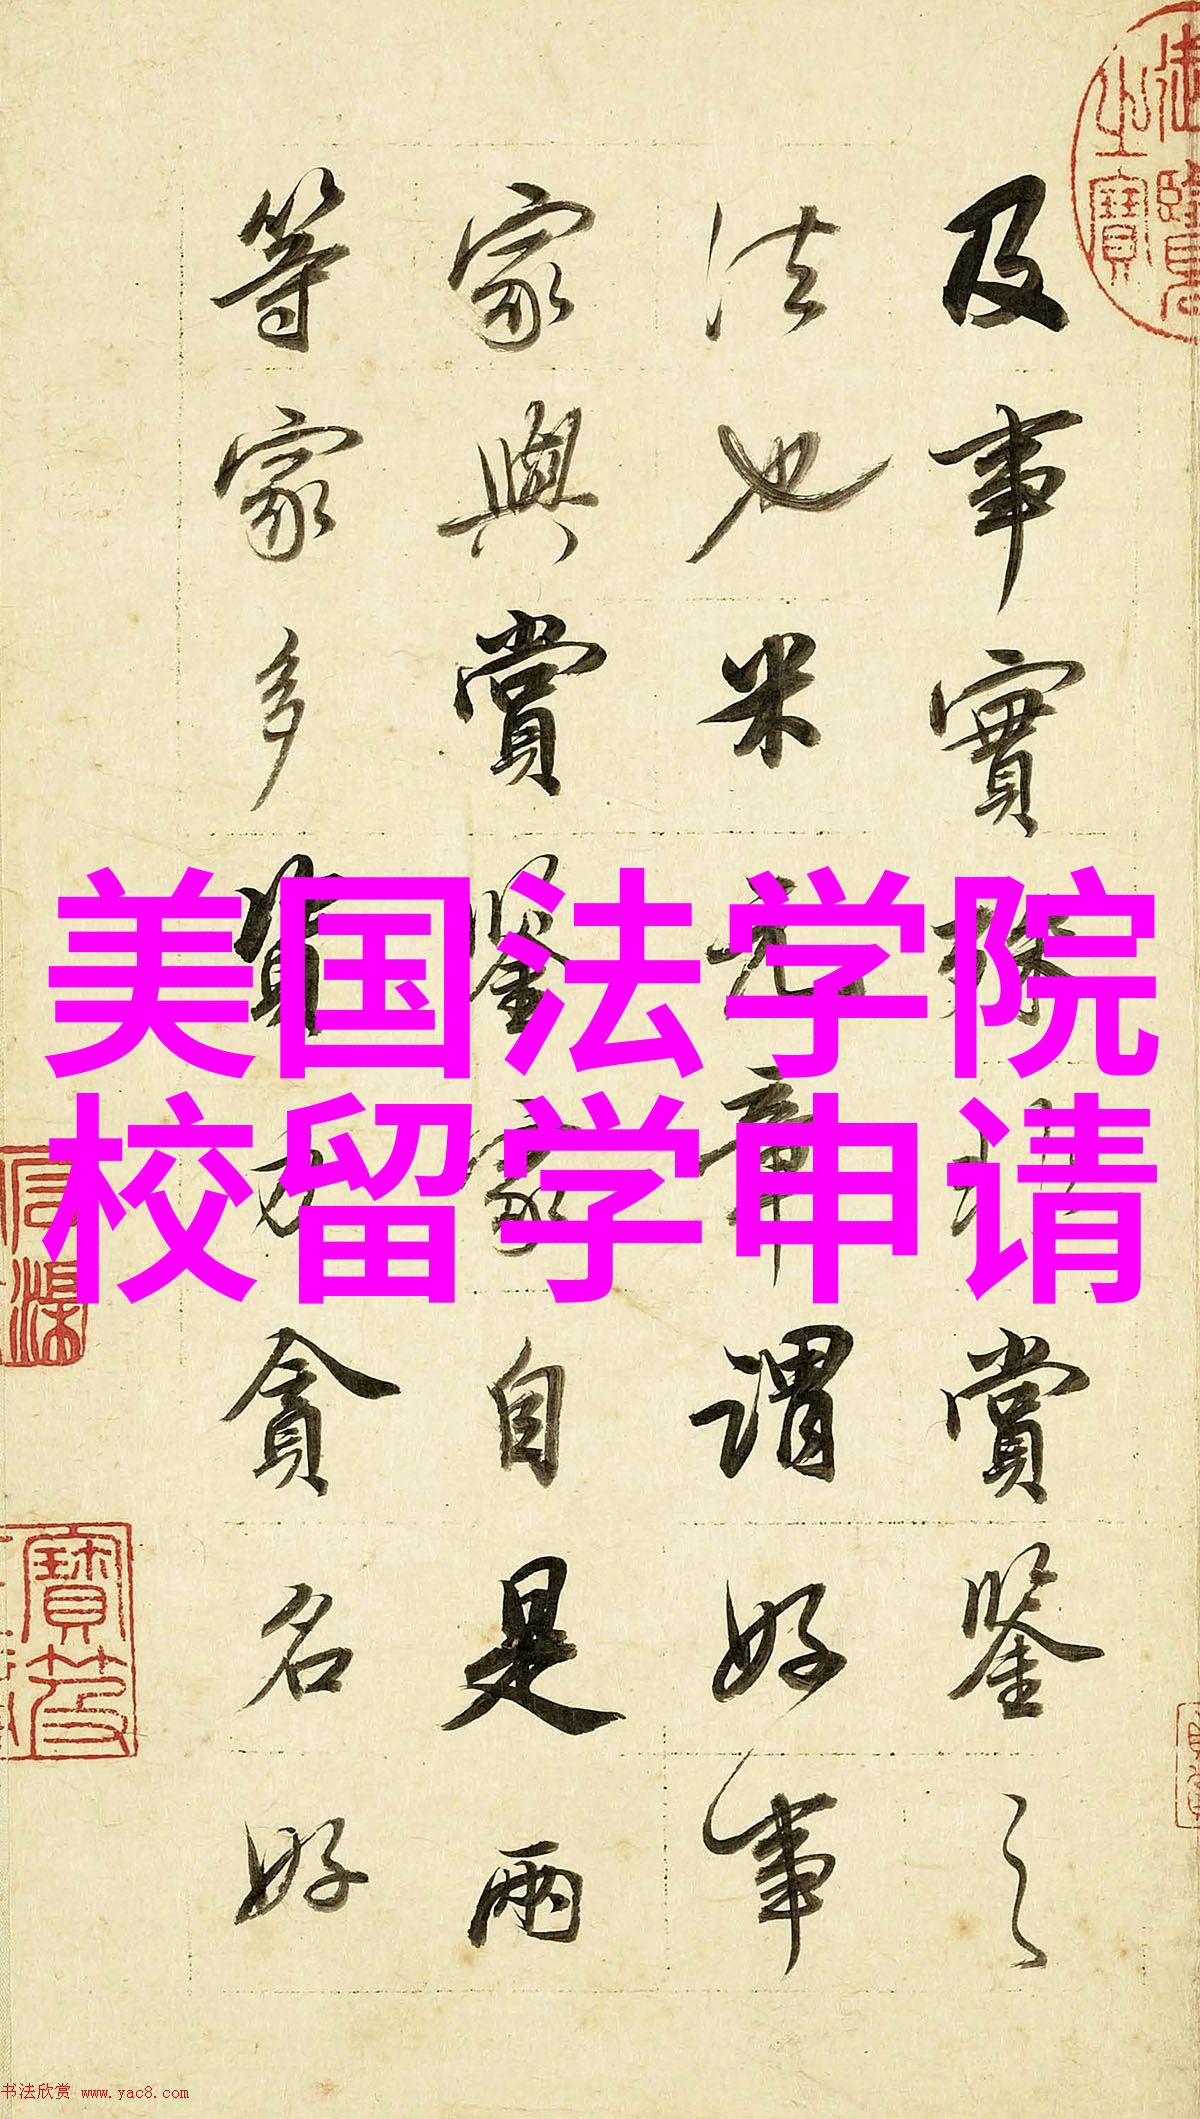 及事實殊非賞鑒之
法也米元章謂好事
家與賞鑒家自是兩
等家多資力貪名好
美国法学院
校留学申请
书法欣赏 www.yac8.com